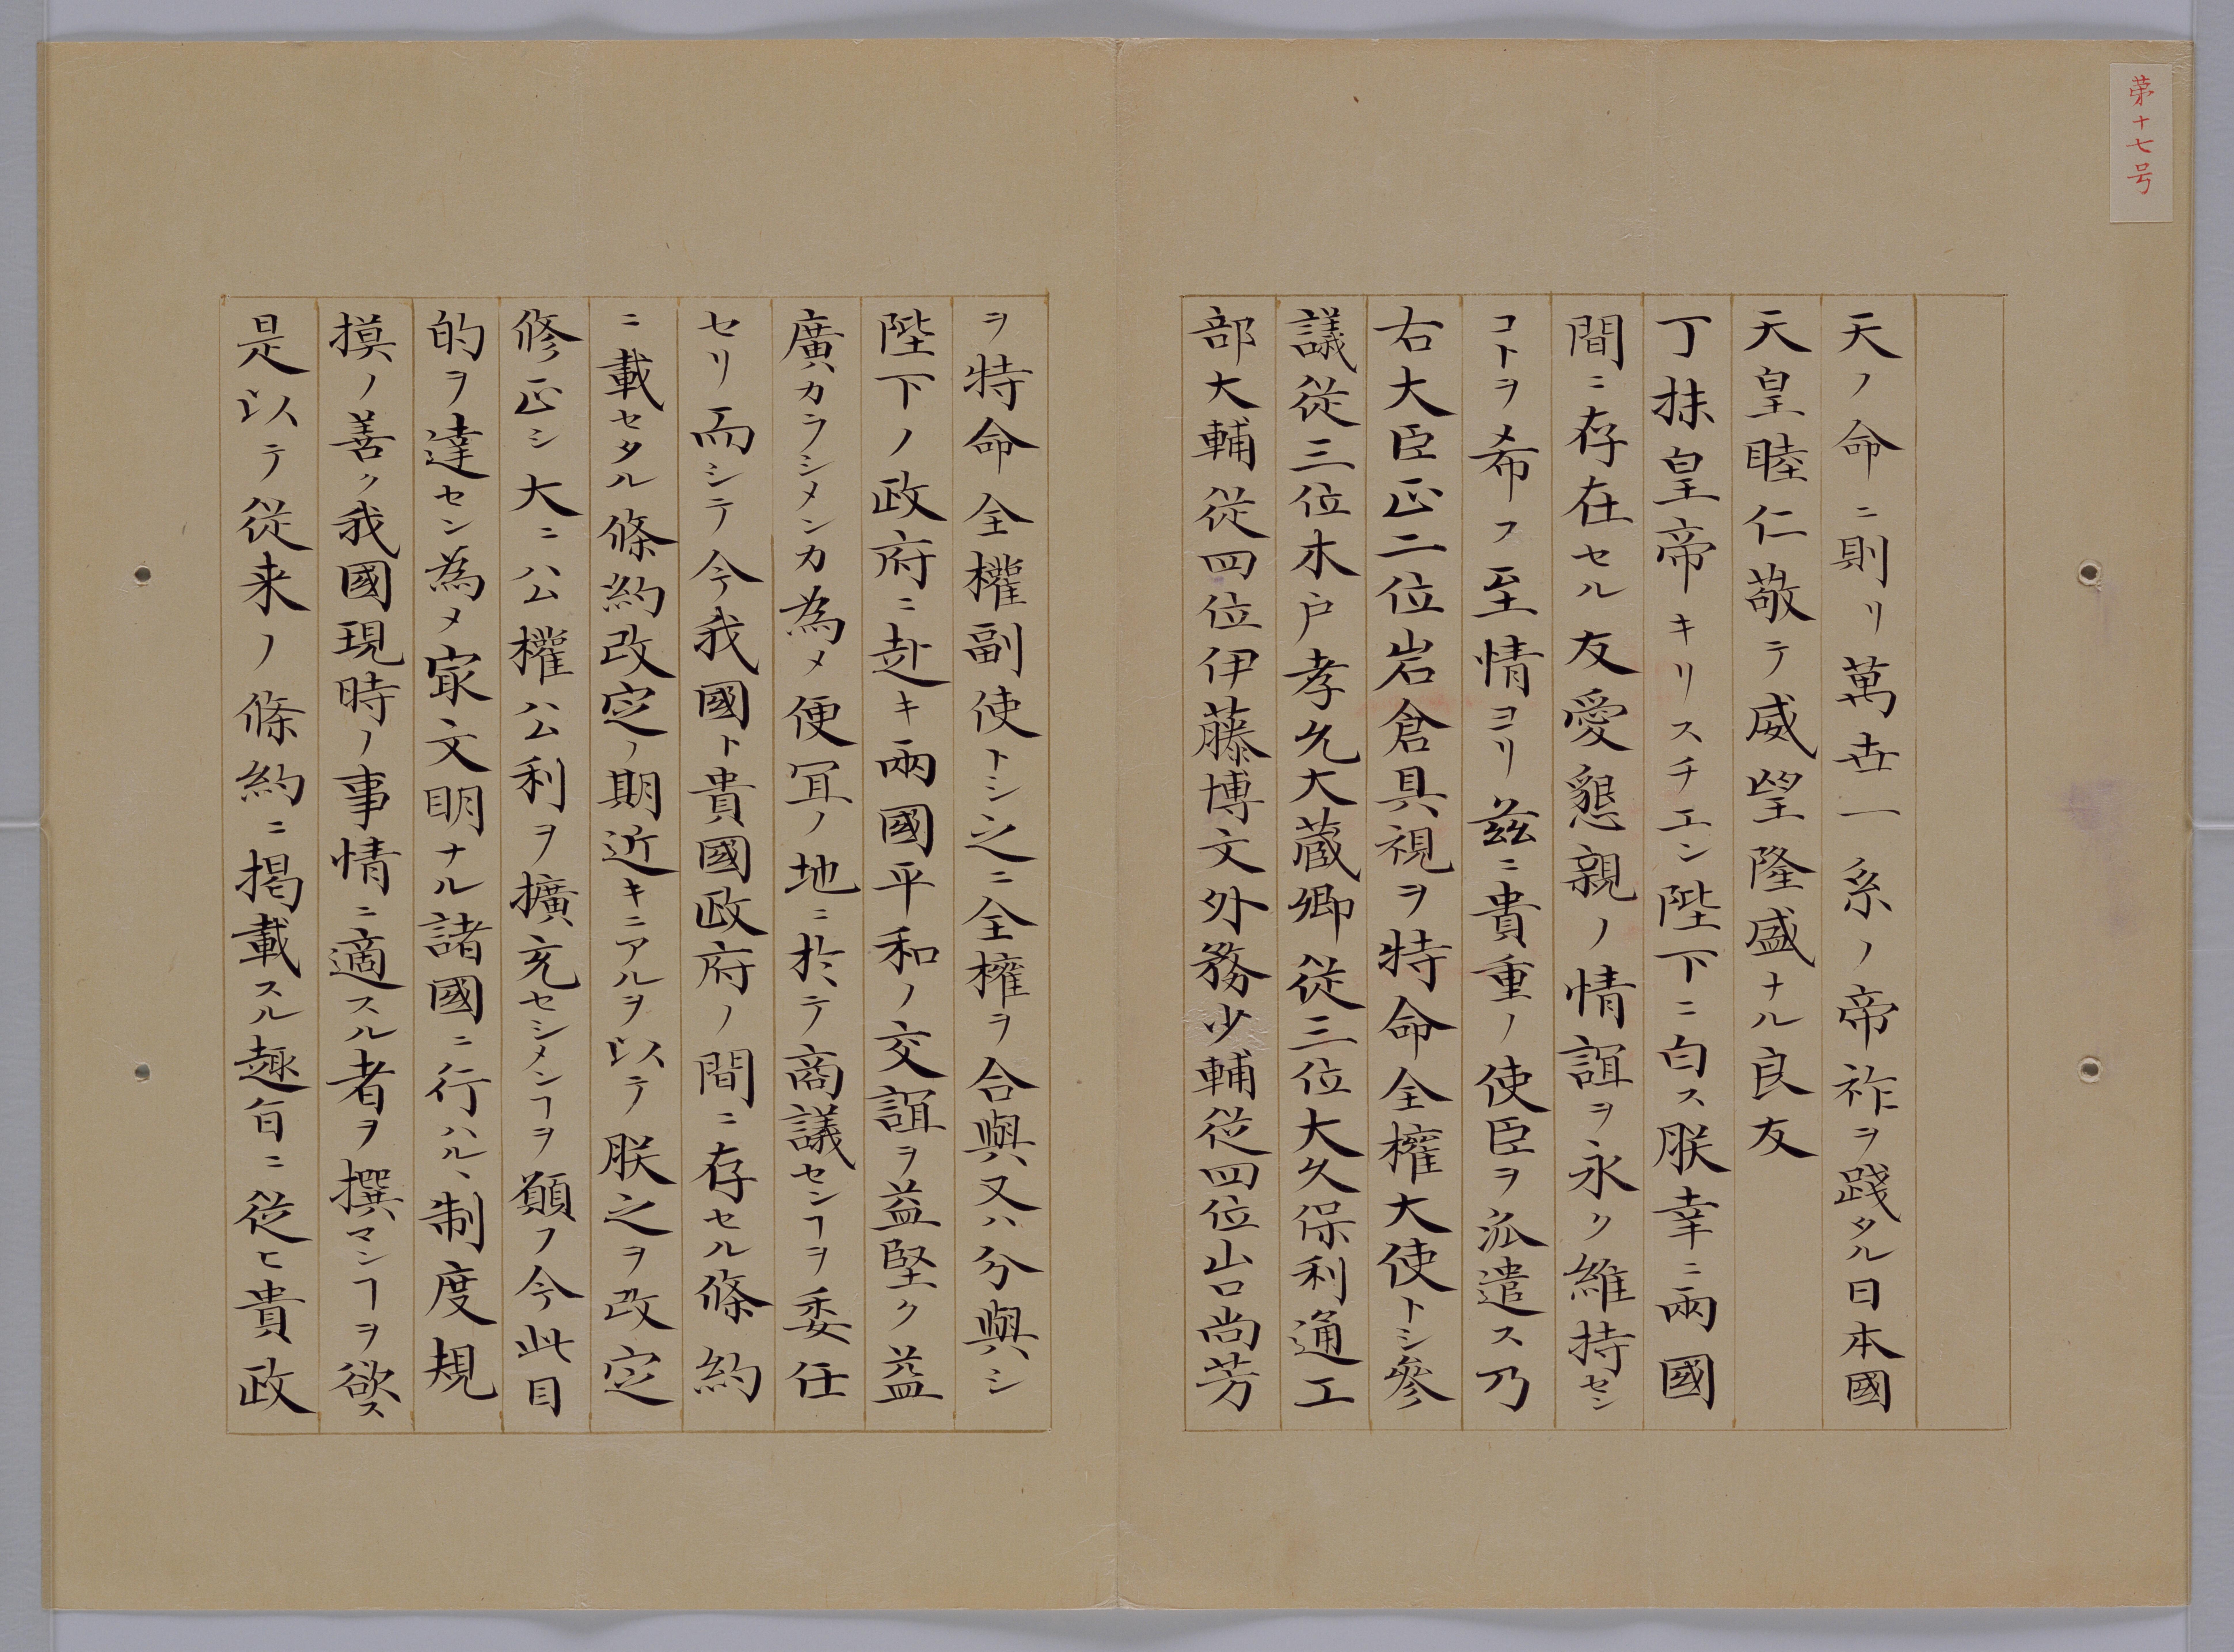 第十七号
天ノ命ニ則リ萬世一系ノ帝祚ヲ踐タル日本國
天皇睦仁敬テ威望隆盛ナル良友
丁抹皇帝キリスチエン陛下ニ白ス朕幸ニ兩國
間ニ存在セル友愛懇親ノ情誼ヲ永ク維持セン
コトヲ希フ至情ヨリ茲ニ貴重ノ使臣ヲ派遣ス乃
右大臣正二位岩倉具視ヲ特命全權大使トシ參
議從三位木戸孝允大蔵卿從三位大久保利通工
部大輔從四位伊藤博文外務少輔從四位山口尚芳
ヲ特命全權副使トシ之ニ全權ヲ合與又ハ分與シ
陛下ノ政府ニ赴キ兩國平和ノ交誼ヲ益堅ク益
廣カラシメンカ為メ便冝ノ地ニ於テ商議センヿヲ委任
セリ而シテ今我國ト貴國政府ノ間ニ存セル條約
ニ載セタル條約改定ノ期近キニアルヲ以テ朕之ヲ改定
修正シ大ニ公權公利ヲ擴充セシメンヿヲ願フ今此目
的ヲ達セン為メ㝡文明ナル諸國ニ行ハルヽ制度規
摸ノ善ク我國現時ノ事情ニ適スル者ヲ撰マンヿヲ欲ス
是以テ從来ノ條約ニ掲載スル趣旨ニ從ヒ貴政